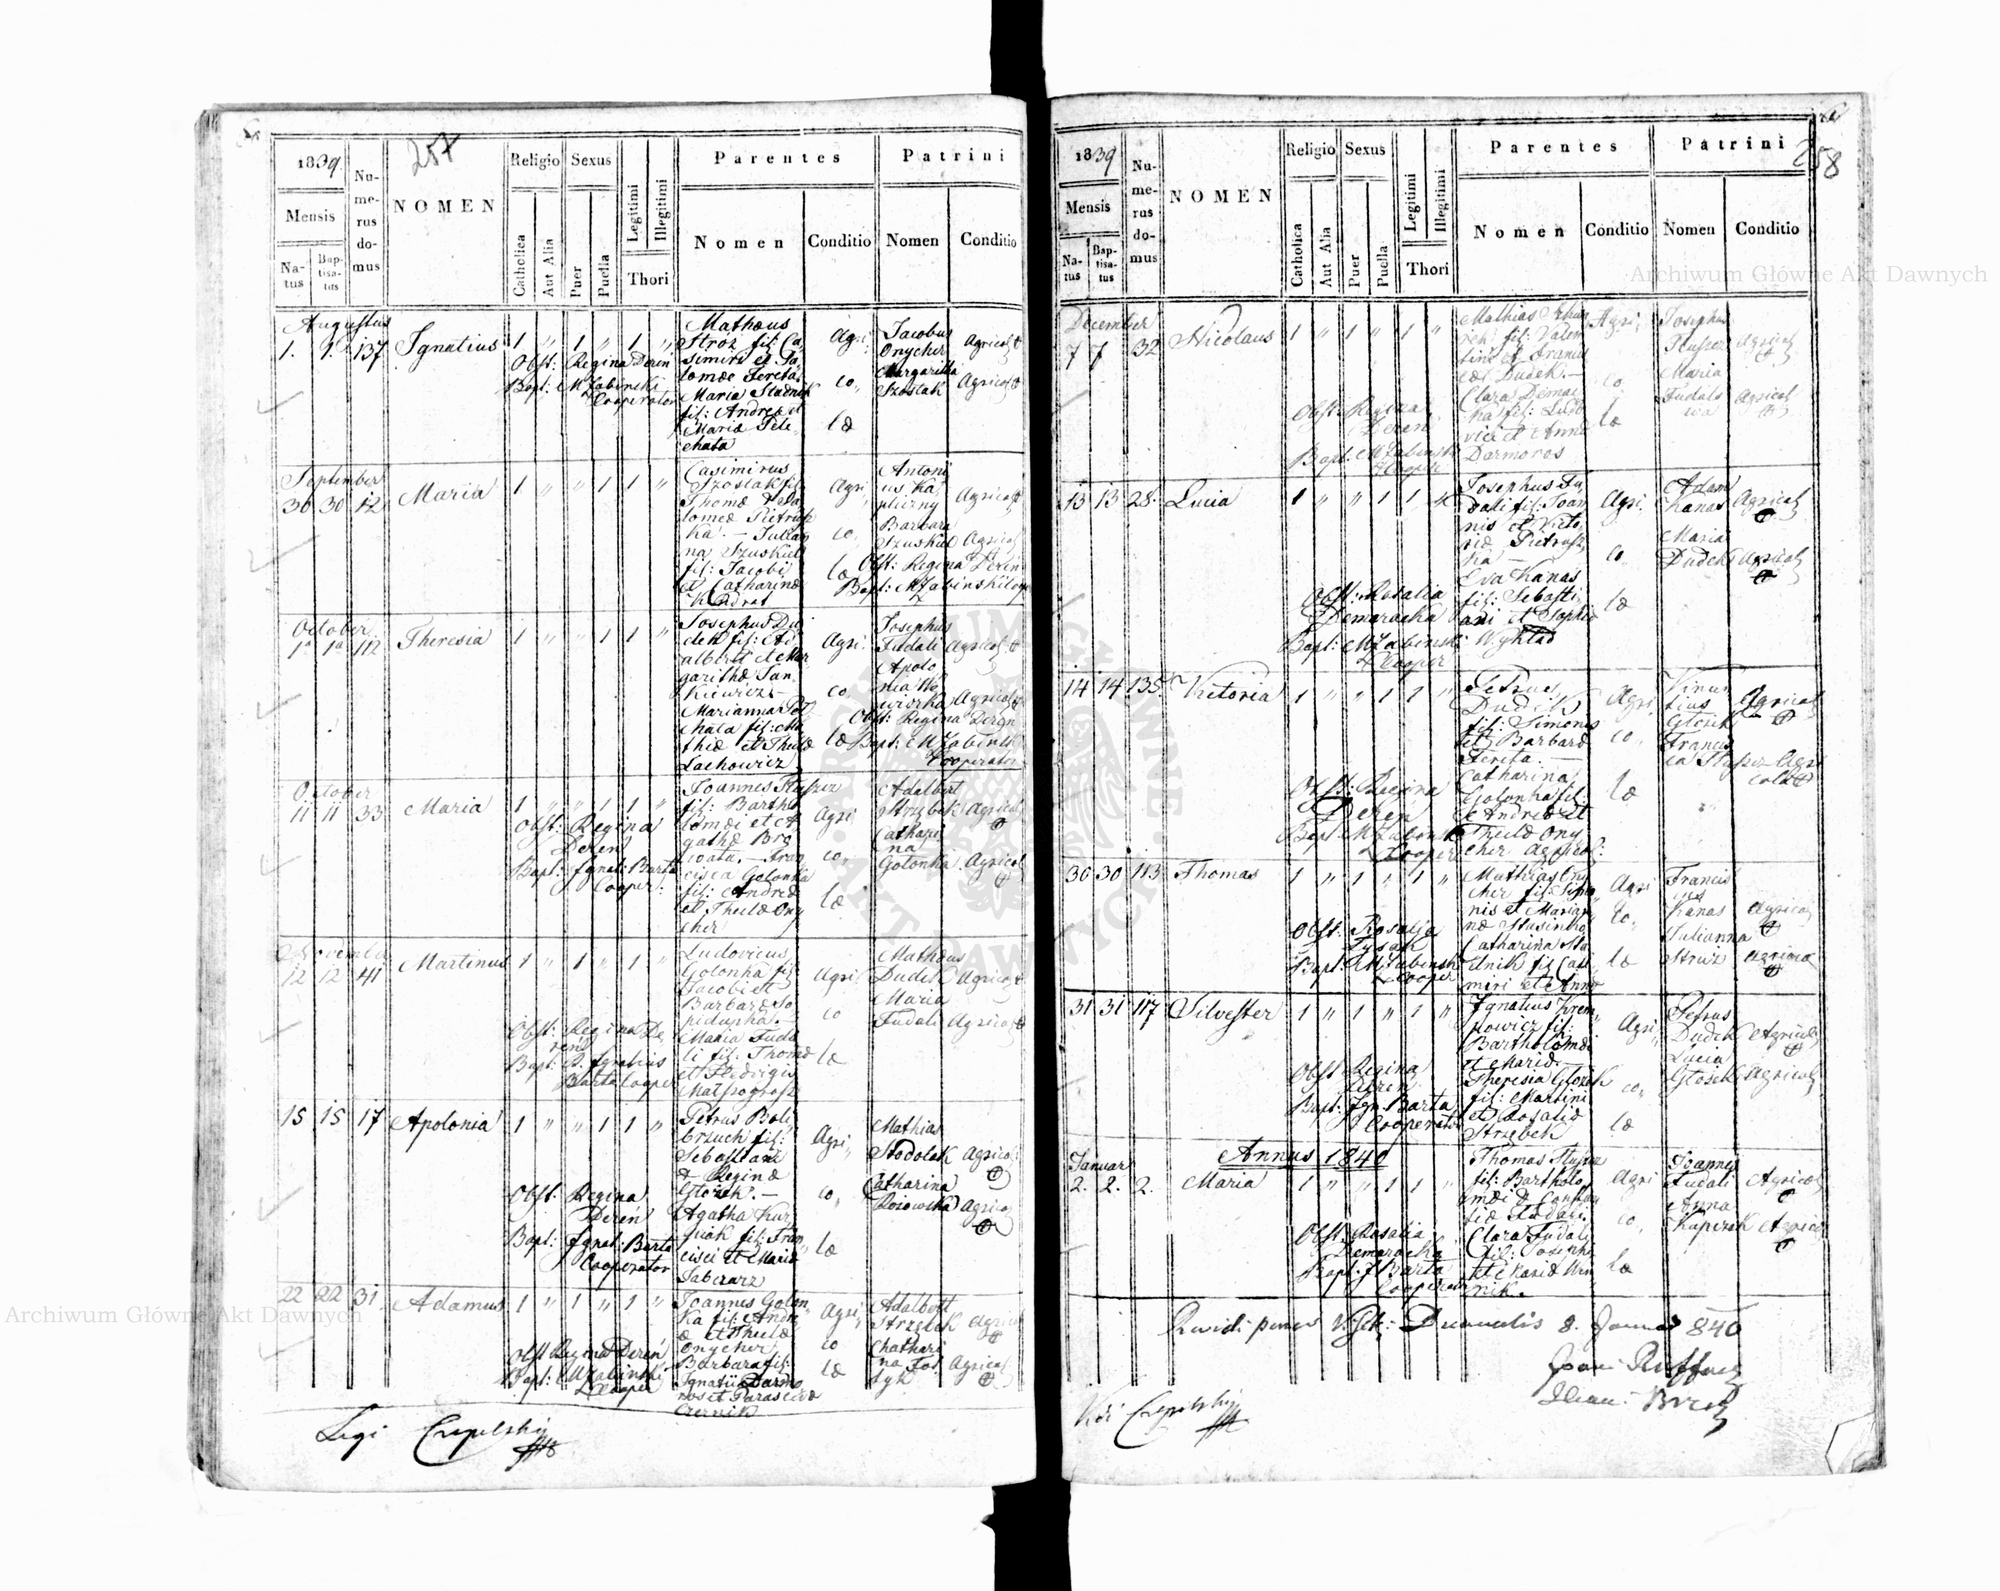 257
1839.
Mensis
Na-
tus
Bap-
tisa-
tus
Nu-
me-
rus
do-
mus
NOMEN
Religio
Catholica
Aut Alia
Sexus
Puer
Puella
Legitimi
Illegitimi
Thori
Parentes
Nomen
Conditio
Patrini
Nomen
Conditio
Augustus
1. 1. 137 Ignatius 1 " 1 " 1 "
Obst: Regina Deren
Bapt: M Zabinski
Cooperator
Mathæus
Stroz fil: Ca
simiri et Sa
lomeæ Fereta
Maria Stadnik
fil: Andreæ et
Mariæ Pele
chata
Agri
co
læ
Jacobus
Onycher
Margaritta
Szostak
Agricolæ
Agricolæ
September
30 30 12 Maria 1 " " 1 1 "
Casimirus
Szostak fil:
Thomæ & Sa
lomeæ Pietrusz
ka. — Julian
na Szuskiel
fil: Jacobi
et Catharinæ
Kondrat
Agri
co
læ
Antoni
us Ka
pliczny
Barbara
Szuskiel
Agricolæ
Agricol
Obst: Regina Deren
Bapt: M Zabinski Coop
October
1a 1a 112 Theresia 1 " " 1 1 "
Josephus Du
dek fil: Ad
alberti et Mar
garithæ Jan
kiewicz —
Marianna Pel
chata fil: Ma
thiæ et Theclæ
Lachowicz
Agri
co
læ
Josephus
Fudali
Apolo
nia
Agricolæ
Agricolæ
Obst: Regina Deren
Bapt: M Zabinski
Cooperator
October
11 11 33 Maria 1 " " 1 1 "
Obst: Regina
Deren
Bapt: Ignat: Barta
Cooper:
Joannes
fil: Bartho
lomæi et A
gathæ Bro
. — Fran
cisca Golonka
fil: Andreæ
et Theclæ Ony
cher
Agri
co
læ
Adalbert
Strzybek
Cathari
na
Golonka
Agricol
Agricol
November
12 12 41 Martinus 1 " 1 " 1 "
Obst: Regina De
ren
Bapt: R. Ignatius
Barta Cooper
Ludovicus
Golonka fil:
Jacobi et
Barbaræ So
piduphæ. —
Maria Fuda
li fil: Thomæ
et Hedvigis
Małpograsz
Agri
co
læ
Mathæus
Dudek
Maria
Fudali
Agricolæ
Agricolæ
15 15 17 Apolonia 1 " " 1 1 "
Obst: Regina
Deren
Bapt: Ignat: Barta
Cooperator
Petrus Boli
brzuch fil:
Sebastiani
& Reginæ
Głozek. —
Agatha Kur
fil: Fran
cisci et Mariæ
Tabisarz
Agri
co
læ
Mathias
Stodolak
Catharina
Rosowska
Agrico
Agrico
22 22 31. Adamus 1 " 1 " 1 "
Obst Regina Deren
Bapt: M Zabinski
Cooper
Joannes Golon
ka fil: Andre
æ et Theclæ
Onycher
Barbara fil:
Ignatii Darmo
ros et Parascevæ
Czernik
Agri
co
læ
Adalbert
Strzybek
Chathari
na Fol
tyk
Agrico
Agricol
Legi Czepelshy
258
1839
Mensis
Na-
tus
Bap-
tisa-
tus
Nu-
me-
rus
do-
mus
NOMEN
Religio
Catholica
Aut Alia
Sexus
Puer
Puella
Legitimi
Illegitimi
Thori
Parentes
Nomen
Conditio
Patrini
Nomen
Conditio
December
7 7 32 Nicolaus 1 " 1 " 1 "
Obst Regina
Deren
Bapt. M Zabinski
Coope
Mathias
fil: Valen
tini et Francis
cæ Dudek. —
Clara Demac
ka fil: Ludo
vici et Annæ
Darmoros
Agri
co
læ
Josephus
Maria
Fudali
Agricol
Agricol
13 13 28. Lucia 1 " " 1 1
Obst: Rosalia
Demaracka
Bapt: M Zabinski
Cooper
Josephus Fu
dali fil: Joan
nis et Victo
riæ Pietrusz
ka —
Eva Kanas
fil: Sebasti
ani et Sophiæ
Wyklad
Agri
co
læ
Adam
Kanas
Maria
Dudek
Agricol
Agricol
14 14 135. Victoria 1 " " 1 1 "
Obst: Regina
Deren
Bapt M Zabinski
Cooper
Petrus
Dudek
fil: Simonis
et Barbaræ
Fereta. —
Catharina
Golonka fil:
Andreæ et
Theclæ Ony
cher Agricol:
Agri
co
læ
Vincen
tius
Głozek
Francis
ca
Agricol
Agri
colæ
30 30 113 Thomas 1 " 1 " 1 "
Obst: Rosalia
Bapt: M Zabinski
Cooper
Mathias Ony
cher fil: Simo
nis et Marian
næ
Catharina Sta
dnik fil Casi
miri et Annæ
Agri
co
læ
Francis
cus
Kanas
Julianna
Stroz
Agricol
Agricol
31 31 117 Silvester 1 " 1 " 1 "
Obst Regina
Deren
Bapt: Ign. Barta
Cooperator
Ignatius Krem
powicz fil:
Bartholomæi
et Mariæ —
Theresia Głozek
fil: Martini
et Rosaliæ
Strzębek
Agri
co
læ
Petrus
Dudek
Lucia
Głozek
Agricol
Agricol
Annus 1840
Januar
2. 2. 2. Maria 1 " " 1 1 "
Obst Rosalia
Demaracka
Bapt. J Barta
Cooperator
Thomas
fil: Bartholo
mæi &
Fudali
Clara Fudali
fil: Josephi
et Mariæ Wen
nik.
Agri
co
læ
Joannes
Fudali
Anna
Kapczak
Agricol
Agrico
Decanalis 8. Januar 840
Czepelshy
Archiwum Główne Akt Dawnych
Archiwum Główne Akt Dawnych
ARCHIWUM GŁÓWNE AKT DAWNYCH